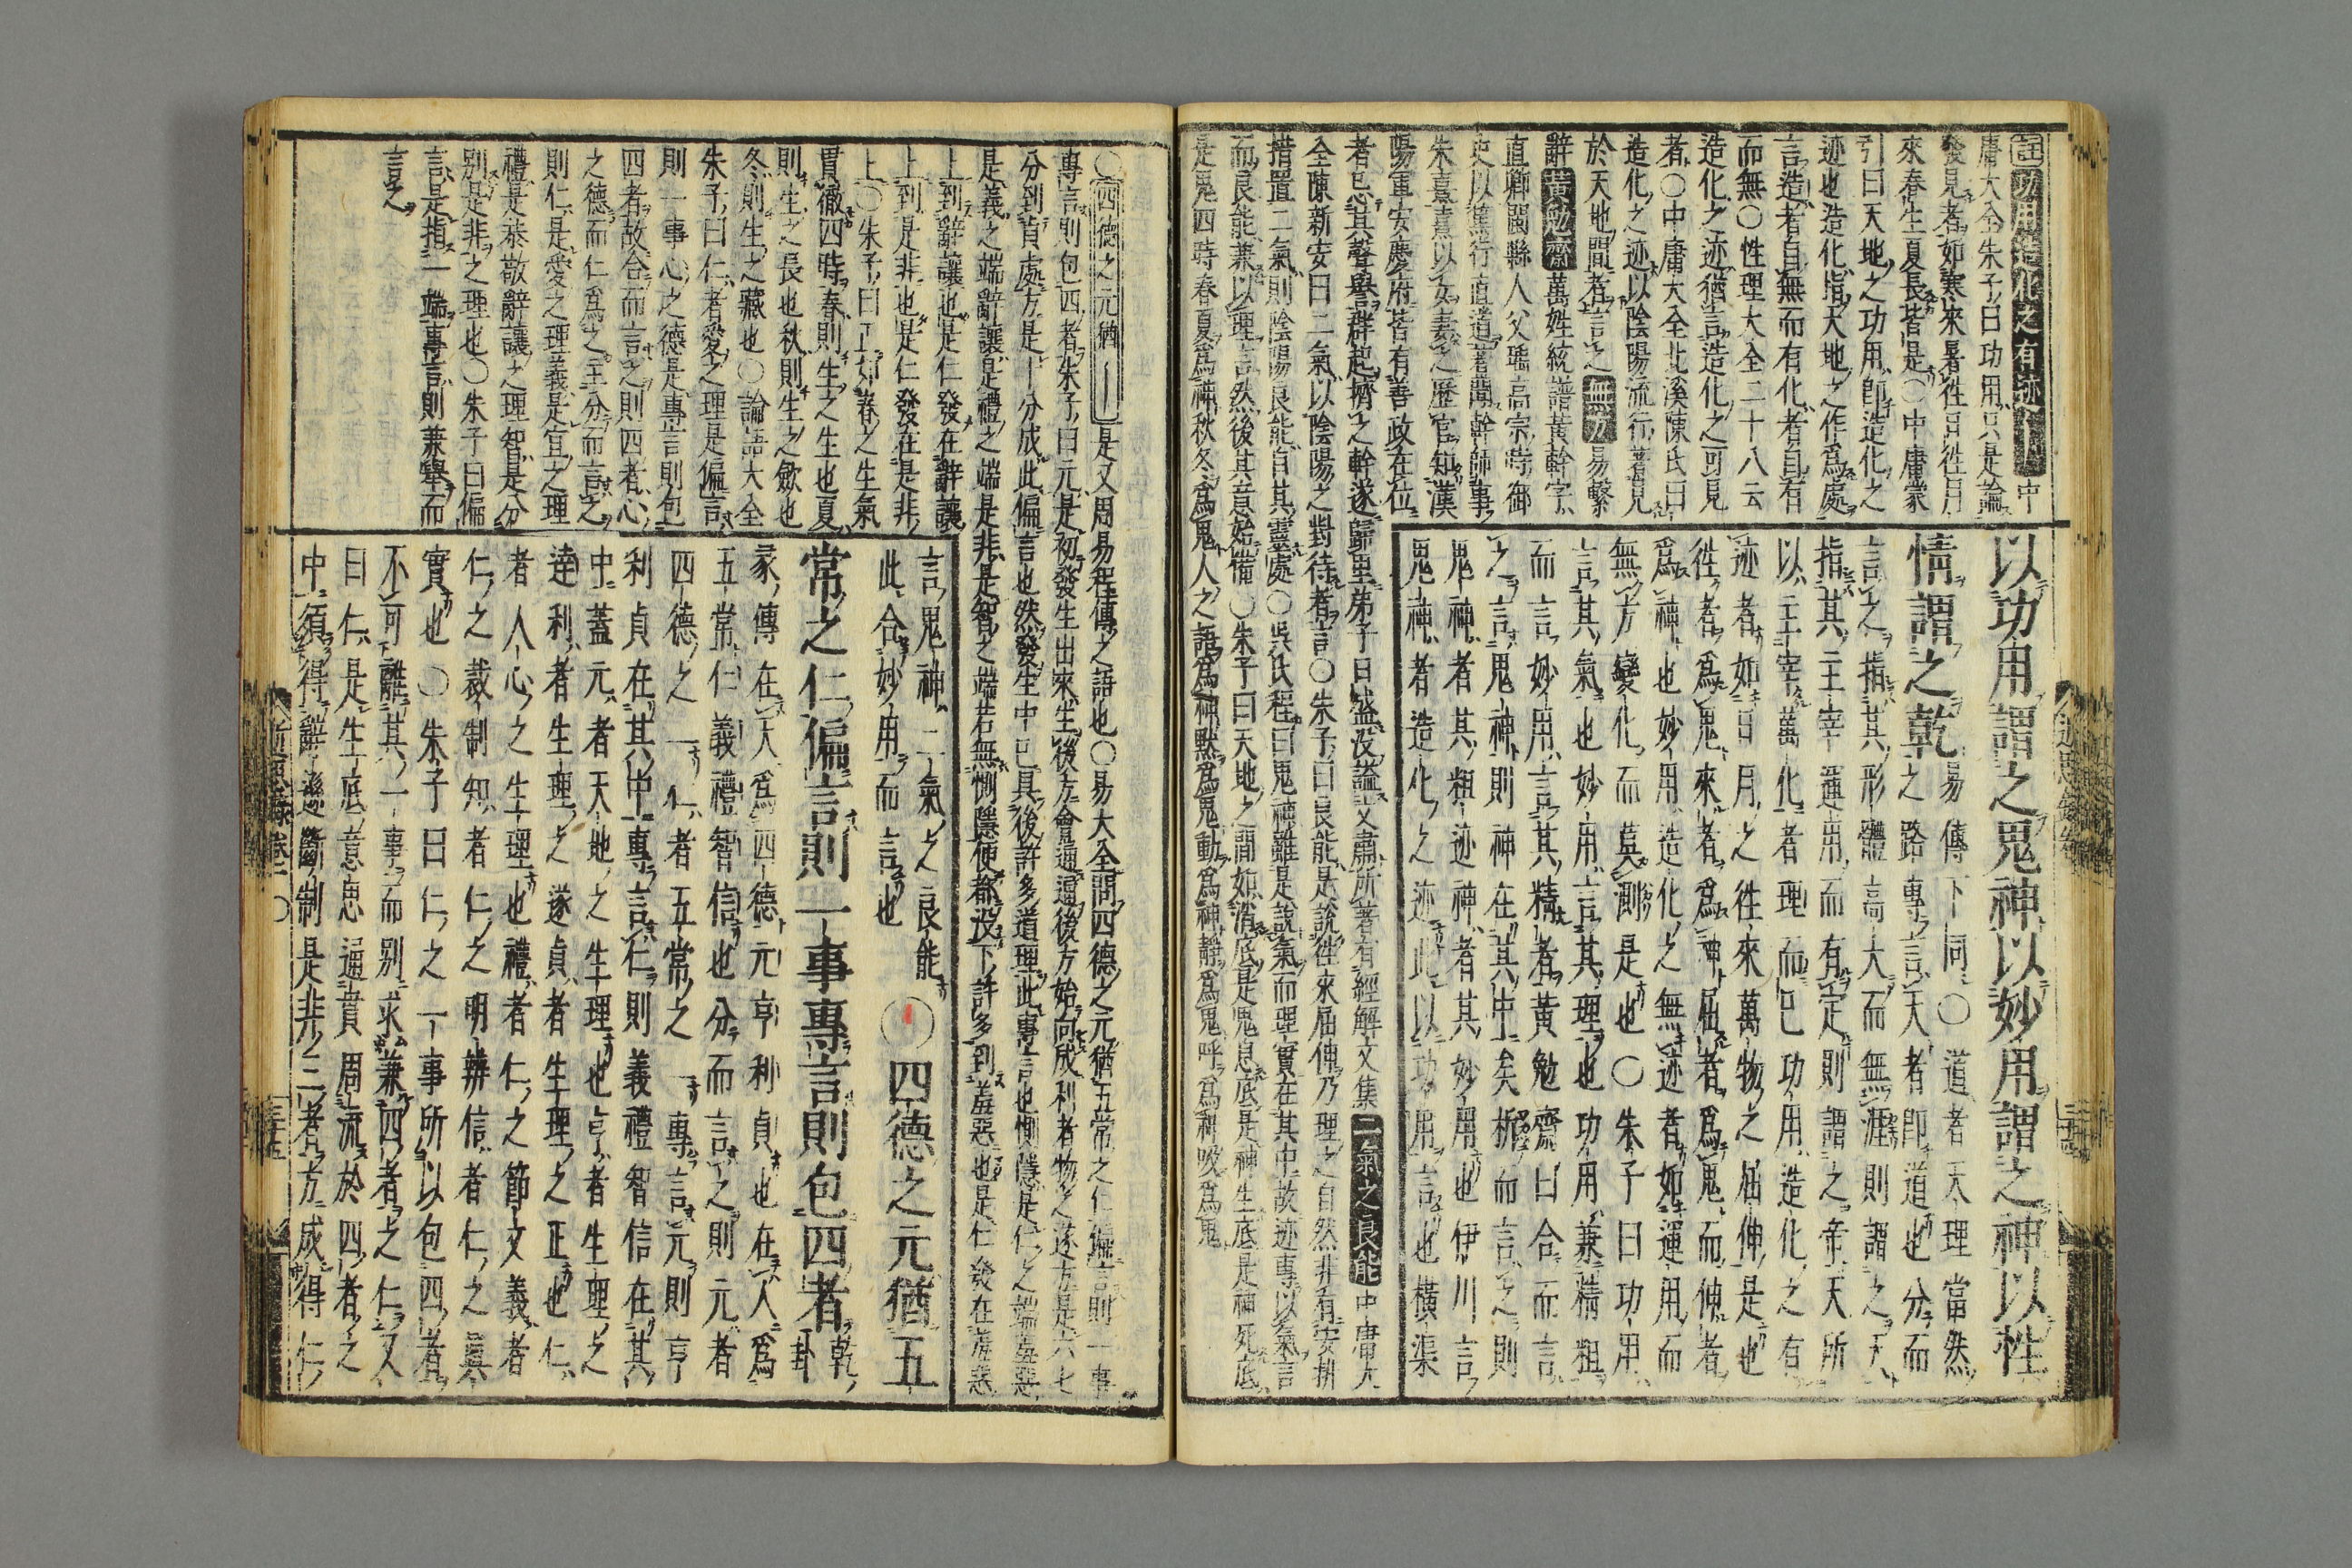 註功用造化之有迹 中
庸大全朱子曰功用只是論
發見者如寒來暑往日往月
來春生夏長皆是○中庸蒙
引曰天地之功用卽造化之
迹也造化指天地之作爲處
言造者自無而有化者自有
而無○性理大全二十八云
造化之迹猶言造化之可見
者○中庸大全北溪陳氏曰
造化之迹以陰陽流行著見
於天地間者言之無方易繫
辭黃勉齋萬姓統譜黃幹字
直卿閩縣人父瑀高宗時御
史以篤行直道著聞幹師事
朱熹熹以女妻之歷官知漢
陽軍安慶府皆有善政在位
者忌其聲譽群起擠之幹遂歸里弟子日盛没謚文肅所著有經解文集二氣之良能中庸大
全陳新安曰二氣以陰陽之對待者言○朱子曰良能是說往來屈伸乃理之自然非有安排
措置二氣則陰陽良能自其靈處○吳氏程曰鬼神雖是說氣而理實在其中故迹專以氣言
而良能兼以理言然後其意始備○朱子曰天地之間如消底是鬼息底是神生底是神死底
是鬼四時春夏爲神秋冬爲鬼人之語爲神默爲鬼動爲神靜爲鬼呼爲神吸爲鬼
以功用謂之鬼神以妙用謂之神以性
情謂之乾易傳下同○道者天理當然
之路專言天者卽道也分而
言之指其形體高大而無涯則謂之天
指其主宰運用而有定則謂之帝天所
以主宰萬化者理而已功用造化之有
迹者如日月之往來萬物之屈伸是也
往者爲鬼來者爲神屈者爲鬼而伸者
爲神也妙用造化之無迹者如運用而
無方變化而莫測是也○朱子曰功用
言其氣也妙用言其理也功用兼精粗
而言妙用言其精者黃勉齋曰合而言
之言鬼神則神在其中矣析而言之則
鬼神者其粗迹神者其妙用也伊川言
鬼神者造化之迹此以功用言也橫渠
○四德之元猶是又周易程傳之語也○易大全問四德之元猶五常之仁偏言則一事
專言則包四者朱子曰元是初發生出來生後方會通通後方始向成利者物之遂方是六七
分到貞處方是十分成此偏言也然發生中已具後許多道理此專言也惻隱是仁之端羞惡
是義之端辭讓是禮之端是非是智之端若無惻隱便都没下許多到羞惡也是仁發在羞惡
上到辭讓也是仁發在辭讓
上到是非也是仁發在是非
上○朱子曰正如春之生氣
貫徹四時春則生之生也夏
則生之長也秋則生之斂也
冬則生之藏也○論語大全
朱子曰仁者愛之理是偏言
則一事心之德是專言則包
四者故合而言之則四者心
之德而仁爲之主分而言之
則仁是愛之理義是宜之理
禮是恭敬辭讓之理智是分
別是非之理也○朱子曰偏
言是指一端事言則兼擧而
言之
言鬼神二氣之良能
此合妙用而言也
四德之元猶五
常之仁偏言則一事專言則包四者乾卦
彖傳在天爲四德元亨利貞也在人爲
五常仁義禮智信也分而言之則元者
四德之一仁者五常之一專言元則亨
利貞在其中專言仁則義禮智信在其
中蓋元者天地之生理也亨者生理之
達利者生理之遂貞者生理之正也仁
者人心之生理也禮者仁之節文義者
仁之裁制知者仁之明辨信者仁之眞
實也○朱子曰仁之一事所以包四者
不可離其一事而別求兼四者之仁又
曰仁是生底意思通貫周流於四者之
中須得辭遜斷制是非三者方成得仁
近思錄卷一
三十五